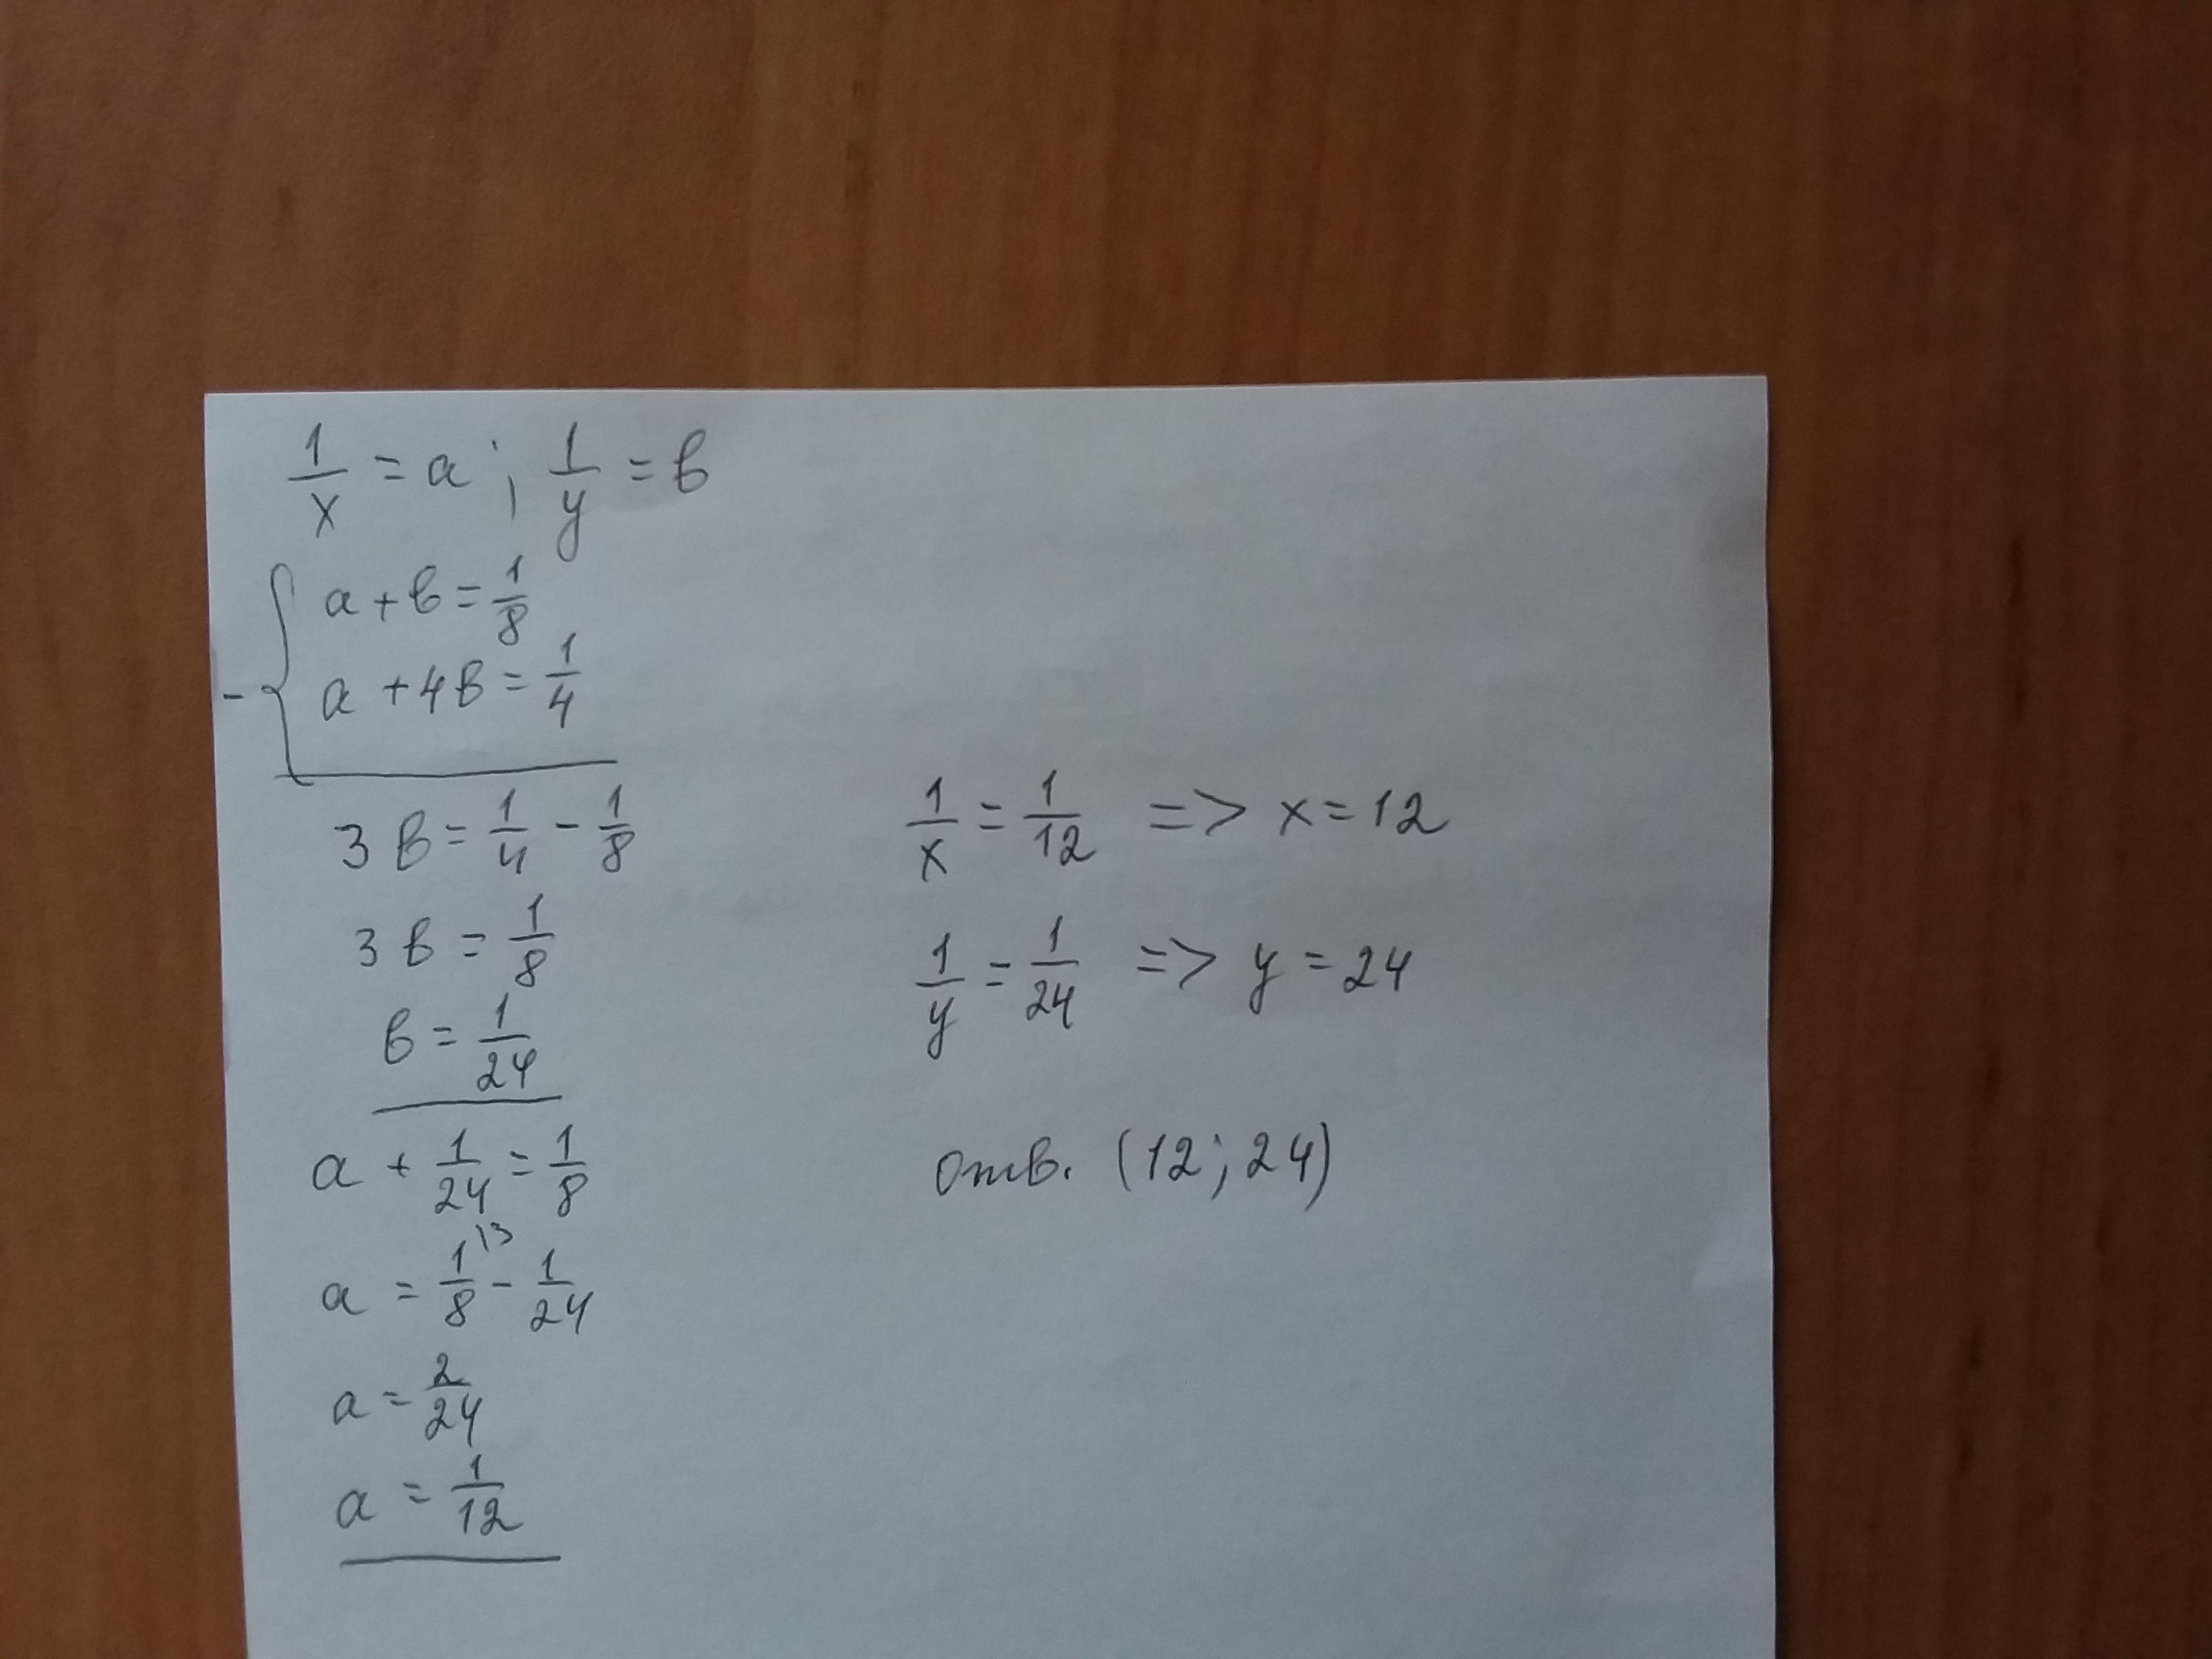 1/x = a; 1/y = в
a + в = 1/8
- { a + 4в = 1/4
3в = 1/4 - 1/8
3в = 1/8
в = 1/24
a + 1/24 = 1/8
a = 1/8 \3 - 1/24
a = 2/24
a = 1/12
1/x = 1/12 => x = 12
1/y = 1/24 => y = 24
отв. (12; 24)